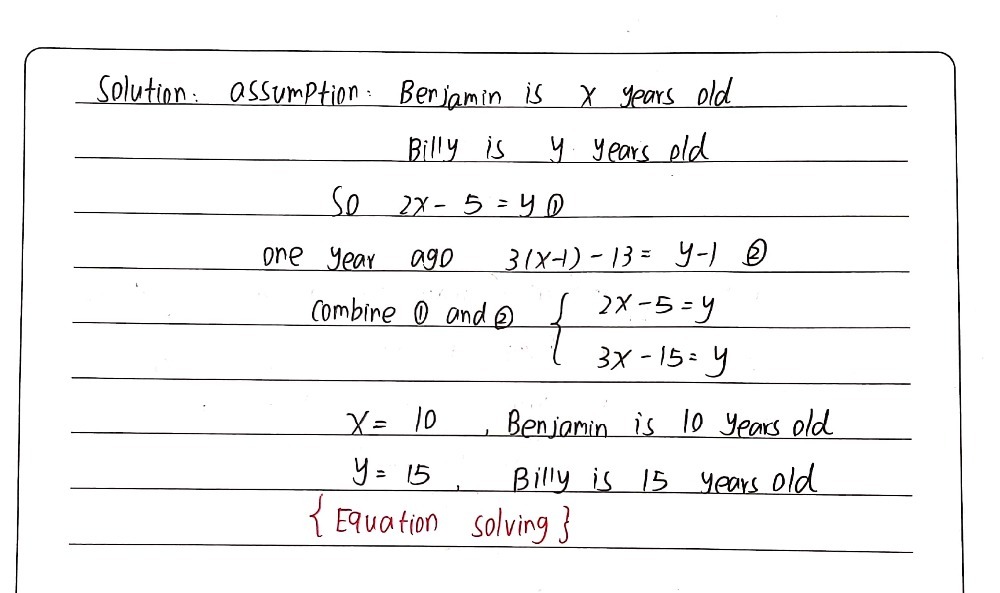 Solution: assumption: Benjamin is x years old
Billy is y years old
So 2x - 5 = y ①
one year ago 3(x-1) - 13 = y-1 ②
Combine ① and ② { 2x - 5 = y
3x - 15 = y
x = 10 , Benjamin is 10 years old
y = 15 , Billy is 15 years old
{ Equation solving }